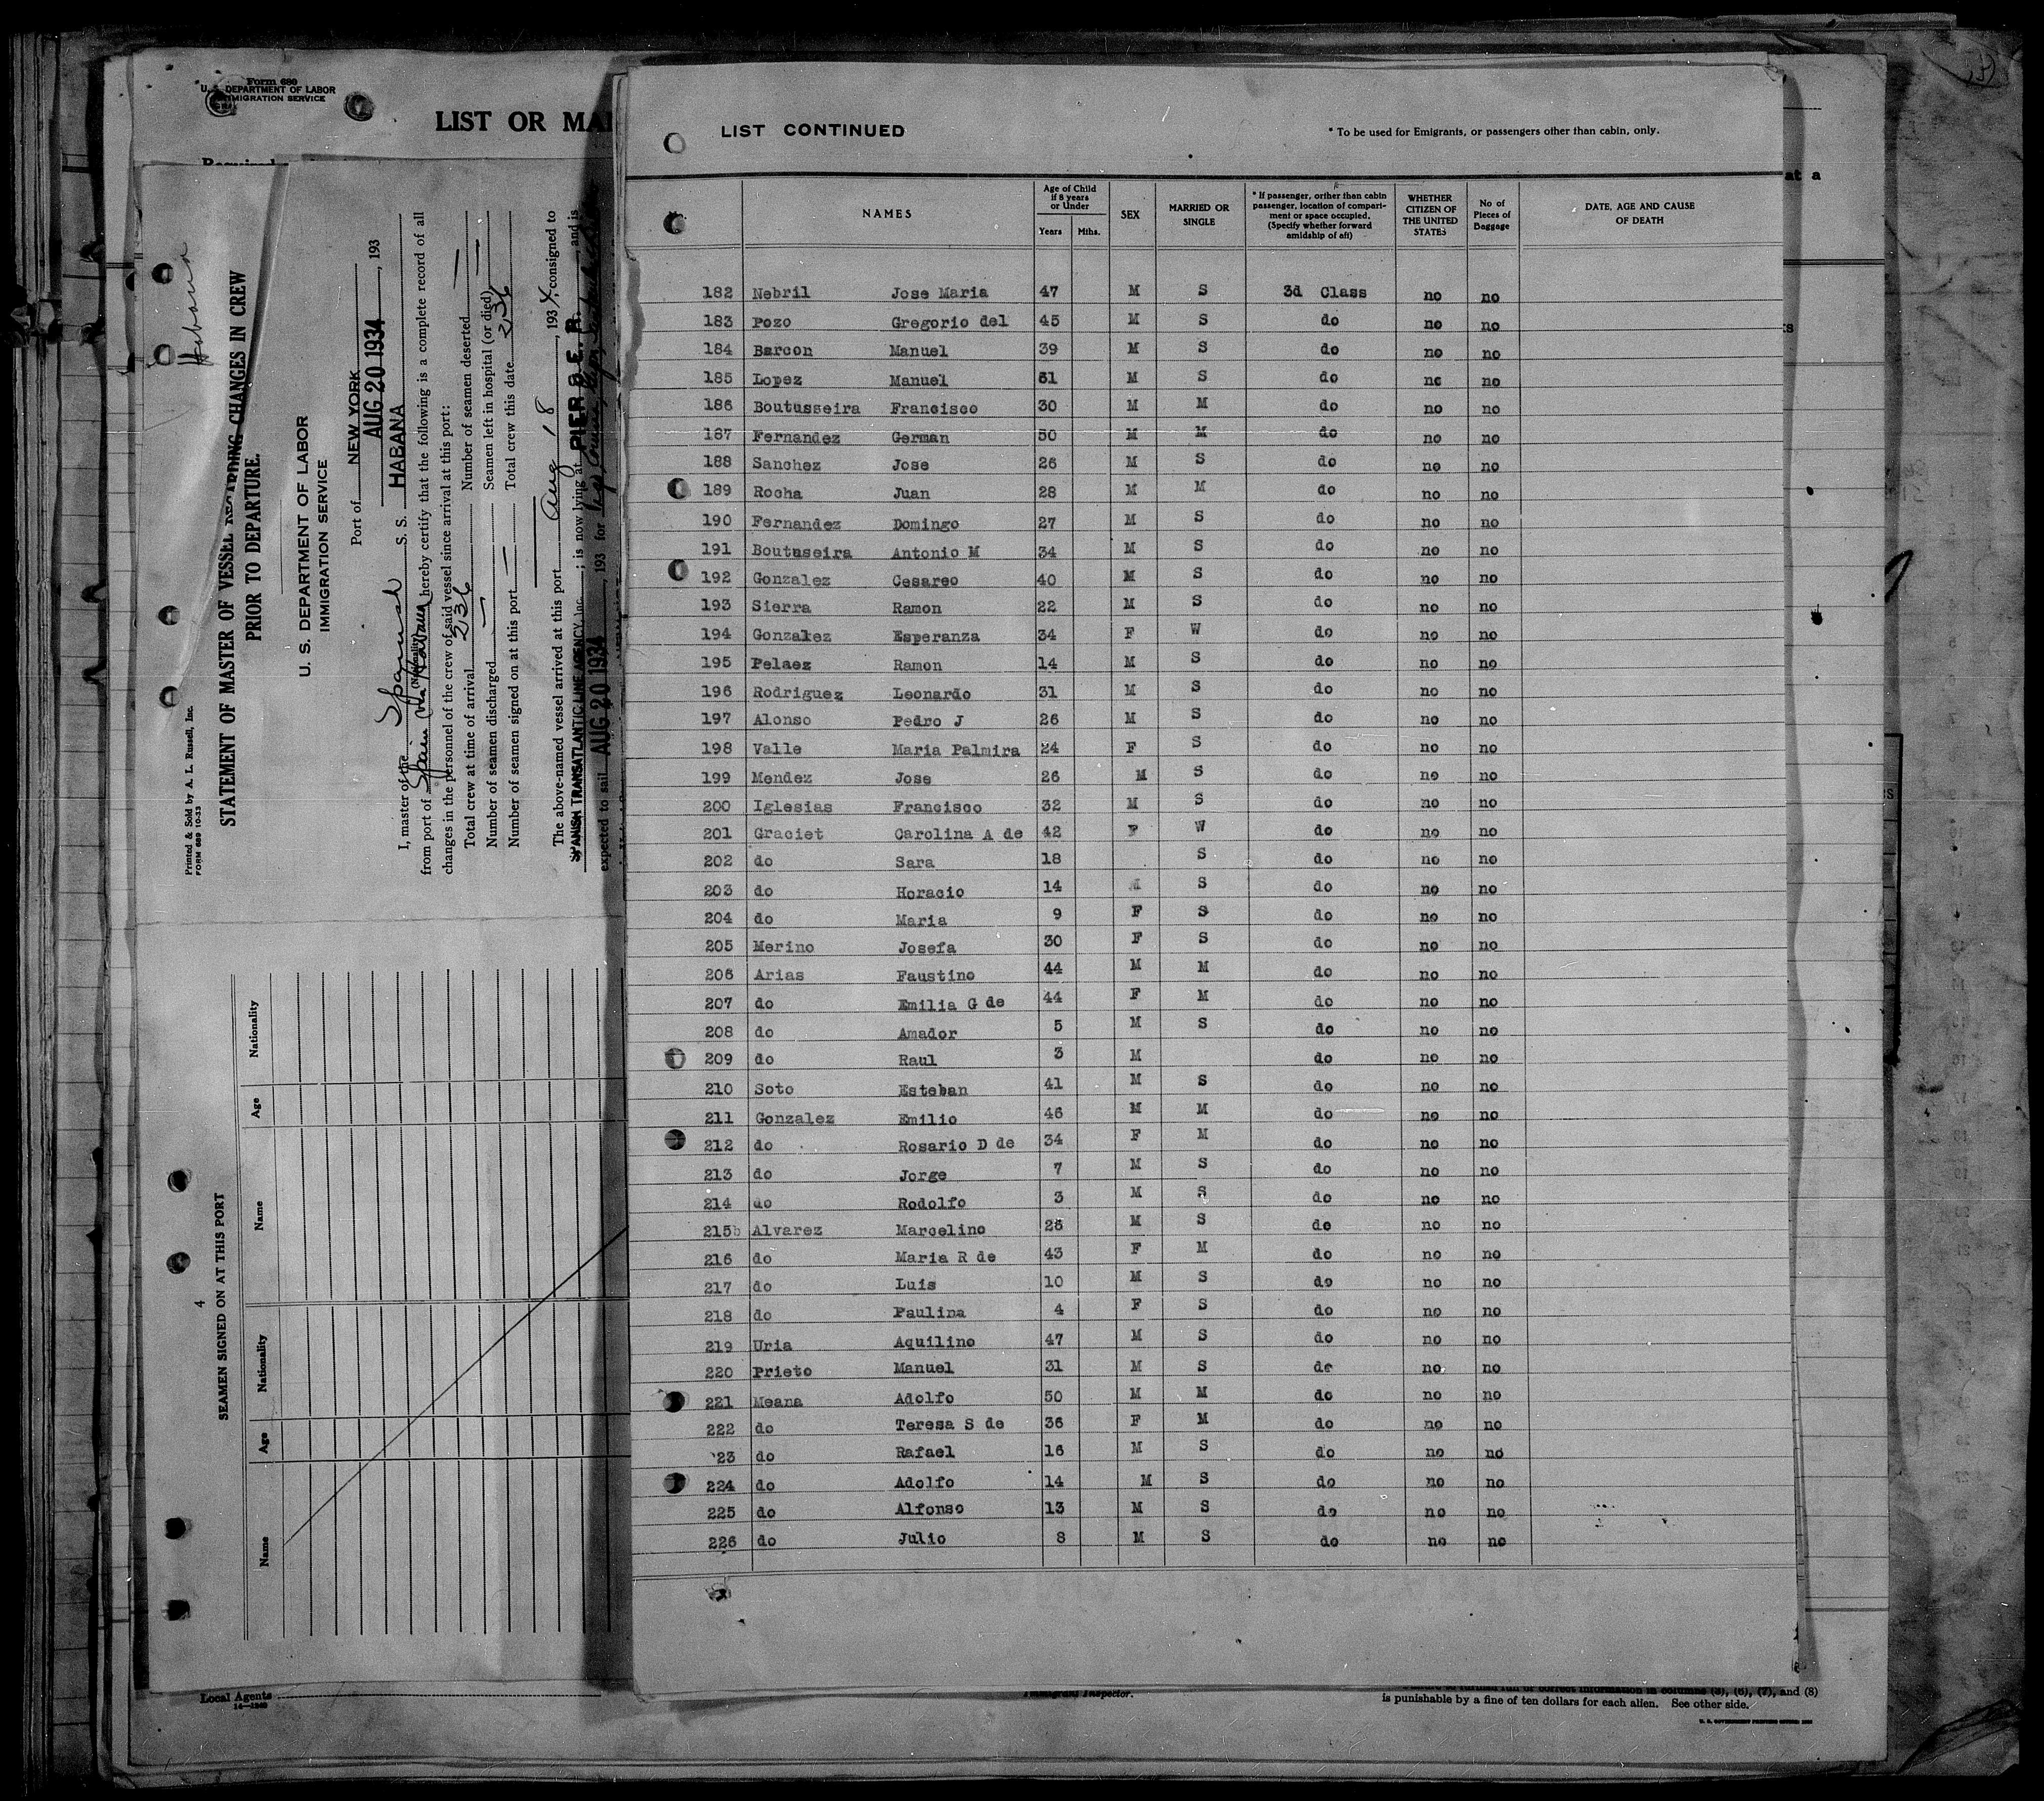 Form 689
U. S. DEPARTMENT OF LABOR
IMMIGRATION SERVICE
LIST OR MA
Habana
Printed & Sold by A. L. Russell, Inc.
FORM 689 10-33
STATEMENT OF MASTER OF VESSEL REGARDING CHANGES IN CREW
PRIOR TO DEPARTURE.
U. S. DEPARTMENT OF LABOR
IMMIGRATION SERVICE
Port of NEW YORK
AUG 20 1934, 193
I, master of the Spanish S. S. HABANA
(Nationality)
from port of Spain via Habana hereby certify that the following is a complete record of all
changes in the personnel of the crew of said vessel since arrival at this port:
Total crew at time of arrival 236 Number of seamen deserted —
Number of seamen discharged — Seamen left in hospital (or died) —
Number of seamen signed on at this port — Total crew this date 236
The above-named vessel arrived at this port Aug 18, 1934, consigned to
SPANISH TRANSATLANTIC LINE AGENCY, Inc. ; is now lying at PIER 8 E. R. and is
expected to sail AUG 20 1934, 193 for
4
SEAMEN SIGNED ON AT THIS PORT
Name Age Nationality Name Age Nationality
Local Agents
LIST CONTINUED
* To be used for Emigrants, or passengers other than cabin, only.
NAMES
Age of Child if 8 years or Under
Years Mths.
SEX
MARRIED OR SINGLE
* If passenger, orither than cabin passenger, location of compartment or space occupied. (Specify whether forward amidship of aft)
WHETHER CITIZEN OF THE UNITED STATES
No of Pieces of Baggage
DATE, AGE AND CAUSE OF DEATH
182 Nebril Jose Maria 47 M S 3d Class no no
183 Pozo Gregorio del 45 M S do no no
184 Barcon Manuel 39 M S do no no
185 Lopez Manuel 31 M S do no no
186 Boutusseira Francisco 30 M M do no no
187 Fernandez German 50 M M do no no
188 Sanchez Jose 26 M S do no no
189 Rocha Juan 28 M M do no no
190 Fernandez Domingo 27 M S do no no
191 Boutuseira Antonio M 34 M S do no no
192 Gonzalez Cesareo 40 M S do no no
193 Sierra Ramon 22 M S do no no
194 Gonzalez Esperanza 34 F W do no no
195 Pelaez Ramon 14 M S do no no
196 Rodriguez Leonardo 31 M S do no no
197 Alonso Pedro J 26 M S do no no
198 Valle Maria Palmira 24 F S do no no
199 Mendez Jose 26 M S do no no
200 Iglesias Francisco 32 M S do no no
201 Graciet Carolina A de 42 F W do no no
202 do Sara 18 S do no no
203 do Horacio 14 M S do no no
204 do Maria 9 F S do no no
205 Merino Josefa 30 F S do no no
206 Arias Faustino 44 M M do no no
207 do Emilia G de 44 F M do no no
208 do Amador 5 M S do no no
209 do Raul 3 M do no no
210 Soto Esteban 41 M S do no no
211 Gonzalez Emilio 46 M M do no no
212 do Rosario D de 34 F M do no no
213 do Jorge 7 M S do no no
214 do Rodolfo 3 M S do no no
215 Alvarez Marcelino 26 M S do no no
216 do Maria R de 43 F M do no no
217 do Luis 10 M S do no no
218 do Paulina 4 F S do no no
219 Uria Aquilino 47 M S do no no
220 Prieto Manuel 31 M S do no no
221 Meana Adolfo 50 M M do no no
222 do Teresa S de 36 F M do no no
223 do Rafael 16 M S do no no
224 do Adolfo 14 M S do no no
225 do Alfonso 13 M S do no no
226 do Julio 8 M S do no no
Immigrant Inspector.
correct information in columns (5), (6), (7), and (8)
is punishable by a fine of ten dollars for each alien. See other side.
at a